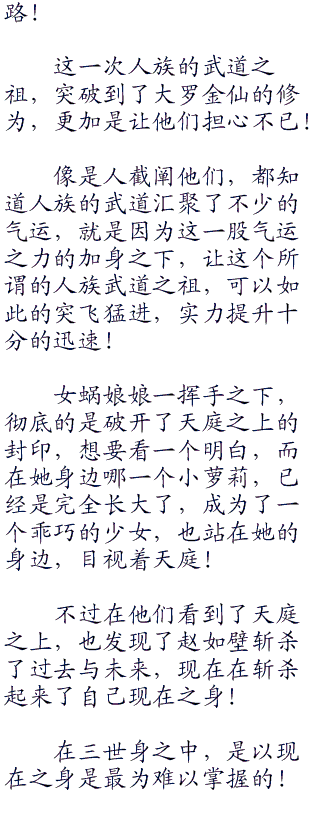 路！
这一次人族的武道之
祖，突破到了大罗金仙的修
为，更加是让他们担心不已！
像是人截阐他们，都知
道人族的武道汇聚了不少的
气运，就是因为这一股气运
之力的加身之下，让这个所
谓的人族武道之祖，可以如
此的突飞猛进，实力提升十
分的迅速！
女蜗娘娘一挥手之下，
彻底的是破开了天庭之上的
封印，想要看一个明白，而
在她身边哪一个小萝莉，已
经是完全长大了，成为了一
个乖巧的少女，也站在她的
身边，目视着天庭！
不过在他们看到了天庭
之上，也发现了赵如壁斩杀
了过去与未来，现在在斩杀
起来了自己现在之身！
在三世身之中，是以现
在之身是最为难以掌握的！